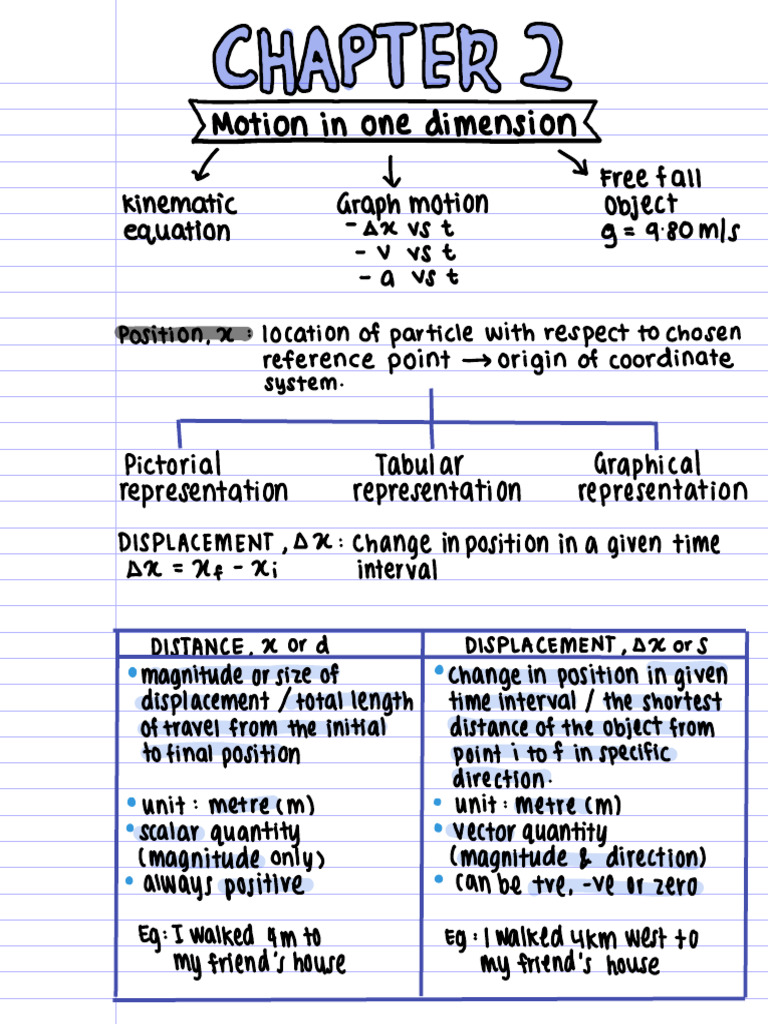 CHAPTER 2
Motion in one dimension
Kinematic
equation
Graph motion
- Δx vs t
- v vs t
- a vs t
Free fall
Object
g = 9.80 m/s
Position, x : location of particle with respect to chosen
reference point → origin of coordinate
system.
Pictorial
representation
Tabular
representation
Graphical
representation
DISPLACEMENT, Δx : Change in position in a given time
interval
Δx = xf - xi
DISTANCE, x or d
• magnitude or size of
displacement / total length
of travel from the initial
to final position
• unit : metre (m)
• scalar quantity
(magnitude only)
• always positive
Eg : I walked 4m to
my friend's house
DISPLACEMENT, Δx or s
• Change in position in given
time interval / the shortest
distance of the object from
point i to f in specific
direction.
• unit : metre (m)
• vector quantity
(magnitude & direction)
• can be +ve, -ve or zero
Eg : I walked 4km west to
my friend's house